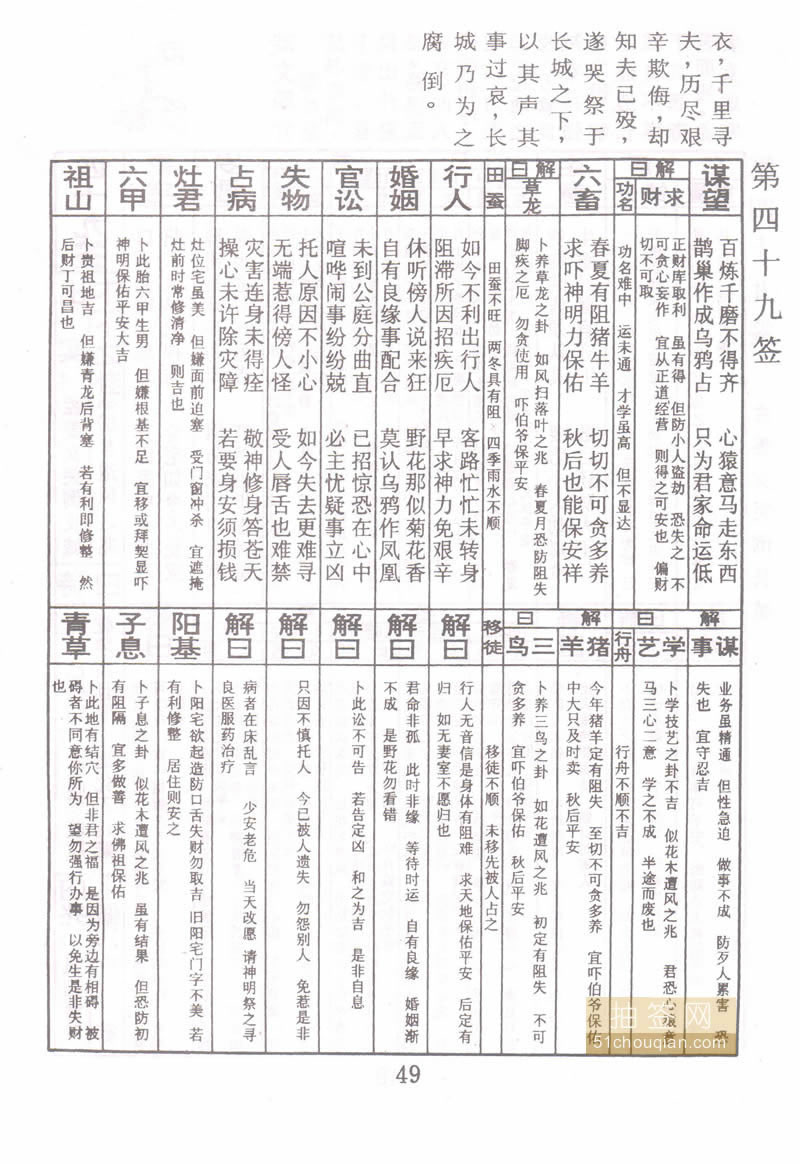 衣，千里寻
夫，历尽艰
辛欺侮，却
知夫已殁，
遂哭祭于
长城之下，
以其声其
事过哀，长
城乃为之
腐倒。
第四十九签
谋望
百炼千磨不得齐 心猿意马走东西
鹊巢作成乌鸦占 只为君家命运低
解曰
求财
正财库取利 虽有得 但防小人盗劫 恐失之 不
可贪心妄作 宜从正道经营 则得之可安也 偏财
切不可取
功名
功名难中 运未通 才学虽高 但不显达
六畜
春夏有阻猪牛羊 切切不可贪多养
求吓神明力保佑 秋后也能保安祥
解曰
草龙
卜养草龙之卦 如风扫落叶之兆 春夏月恐防阻失
脚疾之厄 勿贪使用 吓伯爷保平安
田蚕
田蚕不旺 两冬具有阻 四季雨水不顺
行人
如今不利出行人 客路忙忙未转身
阻滞所因招疾厄 早求神力免艰辛
婚姻
休听傍人说来狂 野花那似菊花香
自有良缘事配合 莫认乌鸦作凤凰
官讼
未到公庭分曲直 已招惊恐在心中
喧哗闹事纷纷兢 必主忧疑事立凶
失物
托人原因不小心 如今失去更难寻
无端惹得傍人怪 受人唇舌也难禁
占病
灾害连身未得痊 敬神修身答苍天
操心未许除灾障 若要身安须损钱
灶君
灶位宅虽美 但嫌面前迫塞 受门窗冲杀 宜遮掩
灶前时常修清净 则吉也
六甲
卜此胎六甲生男 但嫌根基不足 宜移或拜契显吓
神明保佑平安大吉
祖山
卜贵祖地吉 但嫌青龙后背塞 若有利即修整 然
后财丁可昌也
解曰
谋事
业务虽精通 但性急迫 做事不成 防歹人累害 恐
失也 宜守忍吉
学艺
卜学技艺之卦不吉 似花木遭风之兆 君恐心猿意
马三心二意 学之不成 半途而废也
行舟
行舟不顺不吉
解曰
猪羊
今年猪羊定有阻失 至切不可贪多养 宜吓伯爷保佑
中大只及时卖 秋后平安
三鸟
卜养三鸟之卦 如花遭风之兆 初定有阻失 不可
贪多养 宜吓伯爷保佑 秋后平安
移徒
移徒不顺 未移先被人占之
解曰
行人无音信是身体有阻难 求天地保佑平安 后定有
归 如无妻室不愿归也
解曰
君命非孤 此时非缘 等待时运 自有良缘 婚姻渐
不成 是野花勿看错
解曰
卜此讼不可告 若告定凶 和之为吉 是非自息
解曰
只因不慎托人 今已被人遗失 勿怨别人 免惹是非
解曰
病者在床乱言 少安老危 当天改愿 请神明祭之寻
良医服药治疗
阳基
卜阳宅欲起造防口舌失财勿取吉 旧阳宅门字不美 若
有利修整 居住则安之
子息
卜子息之卦 似花木遭风之兆 虽有结果 但恐防初
有阻隔 宜多做善 求佛祖保佑
青草
卜此地有结穴 但非君之福 是因为旁边有相碍 被
碍者不同意你所为 望勿强行办事 以免生是非失财
也
抽签网
51chouqian.com
49